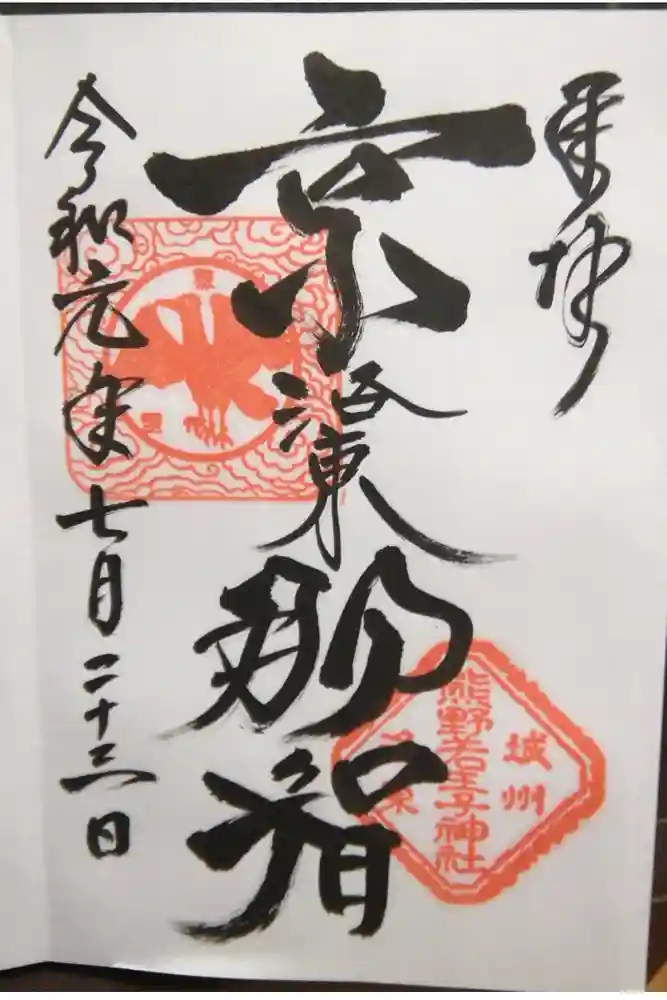 奉拝
京
洛東
那智
熊野若王子神社
城州
令和元年七月二十三日